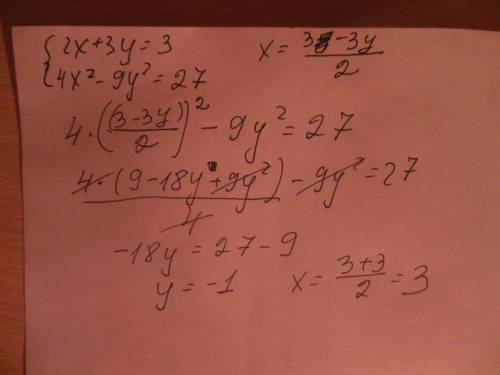 {2x+3y=3    x= (3-3y)/2
{4x²-9y²=27
4·((3-3y)/2)²-9y²=27
4·(9-18y+9y²)/4-9y²=27
-18y=27-9
y=-1    x=(3+3)/2=3